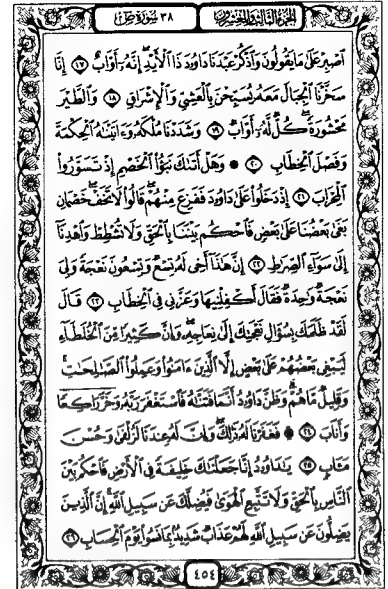 الجزء الثالث والعشرون
٣٨ سورة ص
اصْبِرْ عَلَىٰ مَا يَقُولُونَ وَاذْكُرْ عَبْدَنَا دَاوُدَ ذَا الْأَيْدِ إِنَّهُ أَوَّابٌ ١٧ إِنَّا
سَخَّرْنَا الْجِبَالَ مَعَهُ يُسَبِّحْنَ بِالْعَشِيِّ وَالْإِشْرَاقِ ١٨ وَالطَّيْرَ
مَحْشُورَةً كُلٌّ لَهُ أَوَّابٌ ١٩ وَشَدَدْنَا مُلْكَهُ وَءَاتَيْنَاهُ الْحِكْمَةَ
وَفَصْلَ الْخِطَابِ ٢٠ وَهَلْ أَتَاكَ نَبَؤُا الْخَصْمِ إِذْ تَسَوَّرُوا
الْمِحْرَابَ ٢١ إِذْ دَخَلُوا عَلَىٰ دَاوُدَ فَفَزِعَ مِنْهُمْ قَالُوا لَا تَخَفْ خَصْمَانِ
بَغَىٰ بَعْضُنَا عَلَىٰ بَعْضٍ فَاحْكُمْ بَيْنَنَا بِالْحَقِّ وَلَا تُشْطِطْ وَاهْدِنَا
إِلَىٰ سَوَاءِ الصِّرَاطِ ٢٢ إِنَّ هَٰذَا أَخِي لَهُ تِسْعٌ وَتِسْعُونَ نَعْجَةً وَلِيَ
نَعْجَةٌ وَاحِدَةٌ فَقَالَ أَكْفِلْنِيهَا وَعَزَّنِي فِي الْخِطَابِ ٢٣ قَالَ
لَقَدْ ظَلَمَكَ بِسُؤَالِ نَعْجَتِكَ إِلَىٰ نِعَاجِهِ وَإِنَّ كَثِيرًا مِنَ الْخُلَطَاءِ
لَيَبْغِي بَعْضُهُمْ عَلَىٰ بَعْضٍ إِلَّا الَّذِينَ ءَامَنُوا وَعَمِلُوا الصَّالِحَاتِ
وَقَلِيلٌ مَا هُمْ وَظَنَّ دَاوُدُ أَنَّمَا فَتَنَّاهُ فَاسْتَغْفَرَ رَبَّهُ وَخَرَّ رَاكِعًا
وَأَنَابَ ٢٤ فَغَفَرْنَا لَهُ ذَٰلِكَ وَإِنَّ لَهُ عِنْدَنَا لَزُلْفَىٰ وَحُسْنَ
مَآبٍ ٢٥ يَادَاوُدُ إِنَّا جَعَلْنَاكَ خَلِيفَةً فِي الْأَرْضِ فَاحْكُمْ بَيْنَ
النَّاسِ بِالْحَقِّ وَلَا تَتَّبِعِ الْهَوَىٰ فَيُضِلَّكَ عَنْ سَبِيلِ اللَّهِ إِنَّ الَّذِينَ
يَضِلُّونَ عَنْ سَبِيلِ اللَّهِ لَهُمْ عَذَابٌ شَدِيدٌ بِمَا نَسُوا يَوْمَ الْحِسَابِ ٢٦
٤٥٤